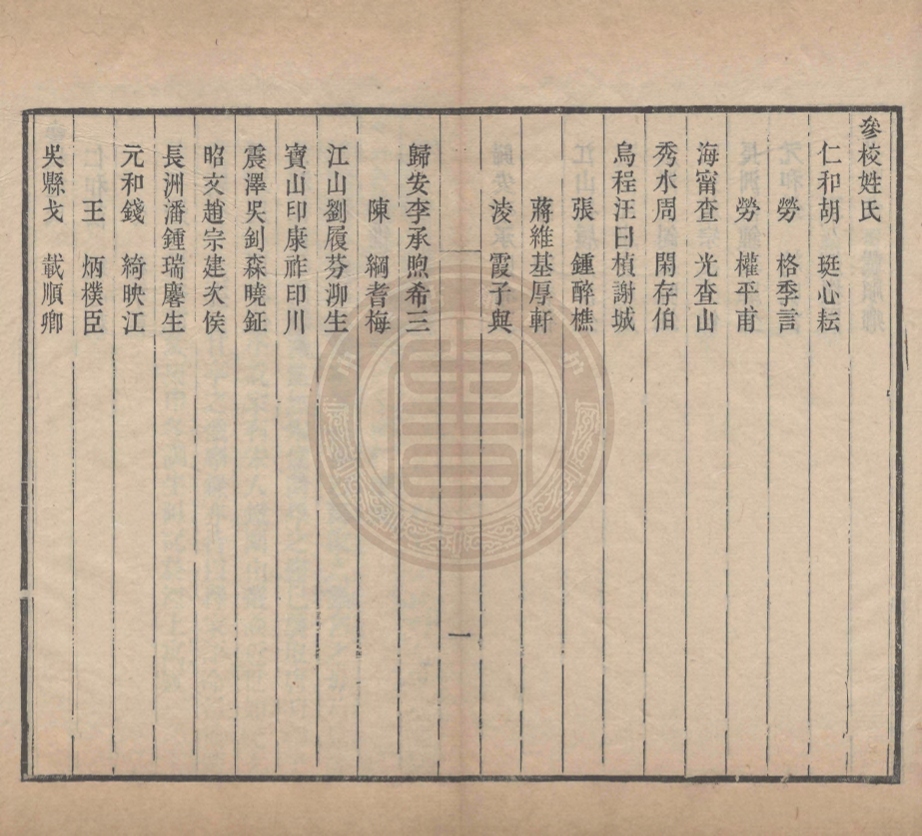 參校姓氏
仁和胡　珽心耘
勞　格季言
勞　權平甫
海甯查　光查山
秀水周　閑存伯
烏程汪曰楨謝城
張　鍾醉樵
蔣維基厚軒
淩　霞子與
一
歸安李承煦希三
陳　綱耆梅
江山劉履芬泖生
寶山印康祚印川
震澤吳釗森曉鉦
昭文趙宗建次侯
長洲潘鍾瑞麐生
元和錢　綺映江
王　炳樸臣
吳縣戈　載順卿